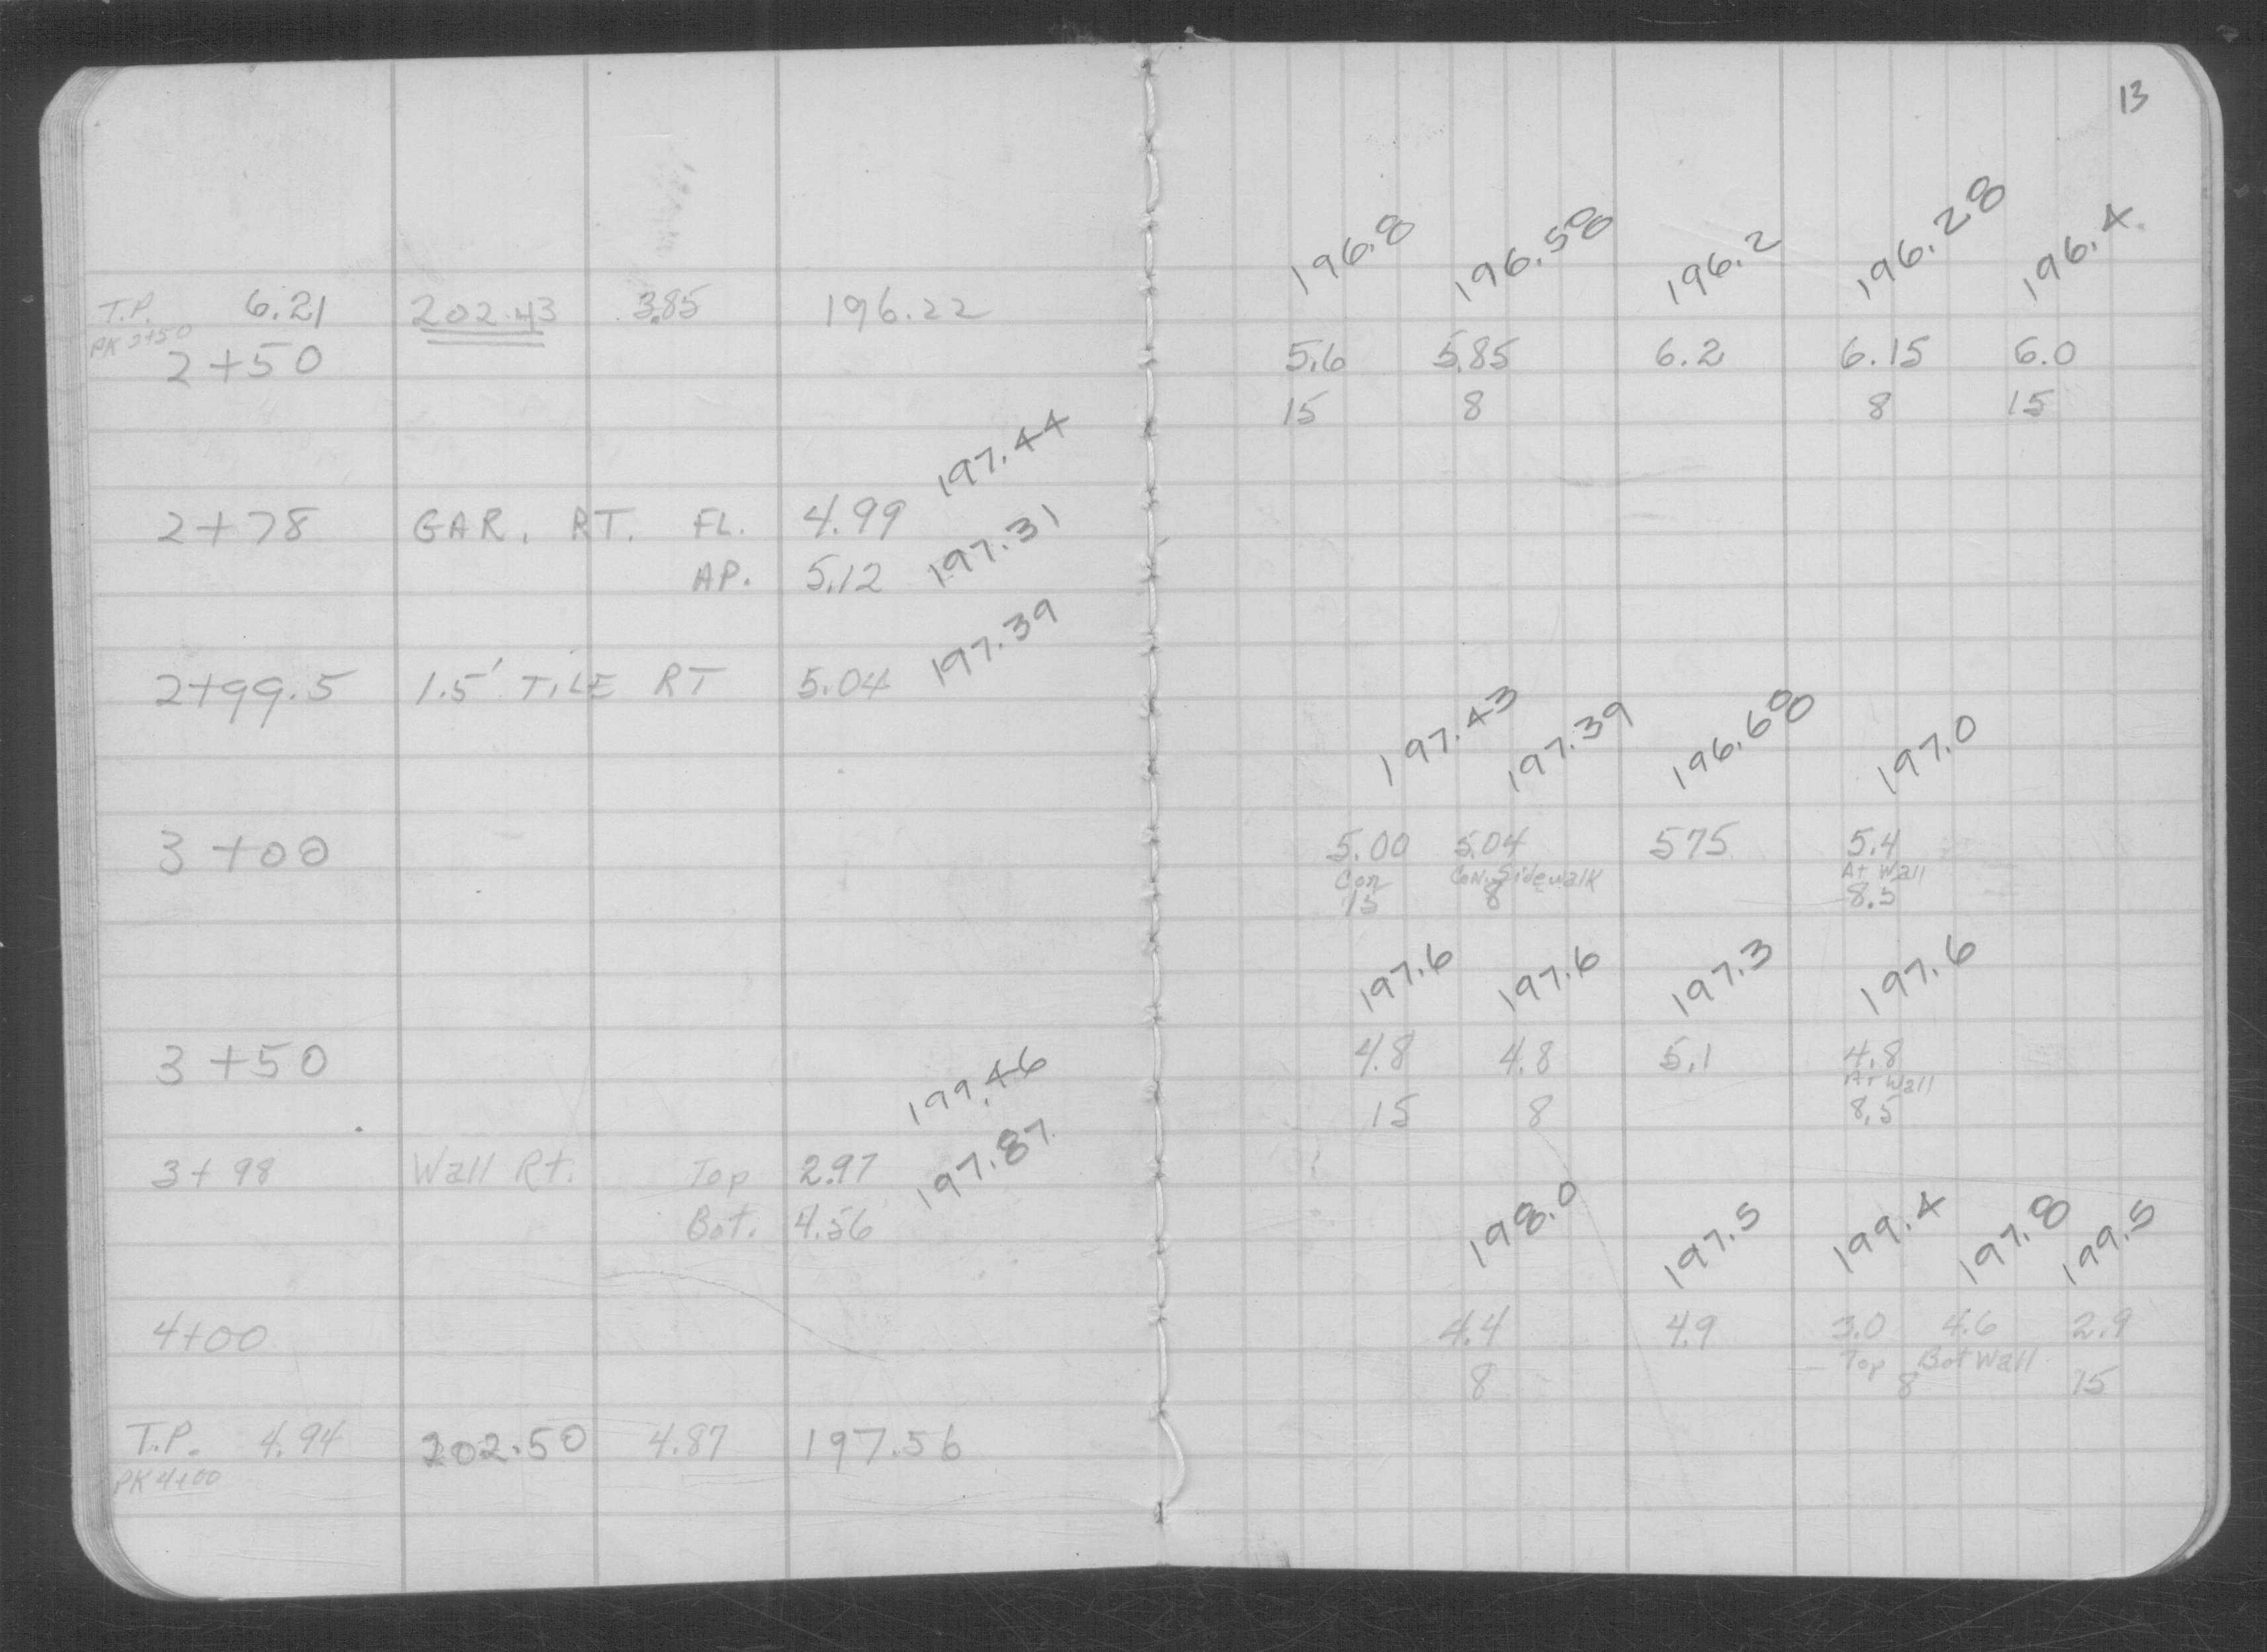 13
T.P. 6.21 202.43 3.85 196.22
PK 2+50
2+50
2+78 GAR. RT. FL. 4.99 197.44
AP. 5.12 197.31
2+99.5 1.5' TILE RT 5.04 197.39
3+00
3+50
3+98 Wall Rt. Top 2.97 199.46
Bot. 4.56 197.87
4+00
T.P. 4.94 202.50 4.87 197.56
PK 4+00
196.8 196.58 196.2 196.28 196.4
5.6 5.85 6.2 6.15 6.0
15 8 8 15
197.43 197.39 196.68 197.0
5.00 5.04 575 5.4
Con Con. Sidewalk At Wall
15 8 8.5
197.6 197.6 197.3 197.6
4.8 4.8 5.1 4.8
At Wall
15 8 8.5
198.0 197.5 199.4 197.8 199.5
4.4 4.9 3.0 4.6 2.9
Top Bot Wall
8 8 15